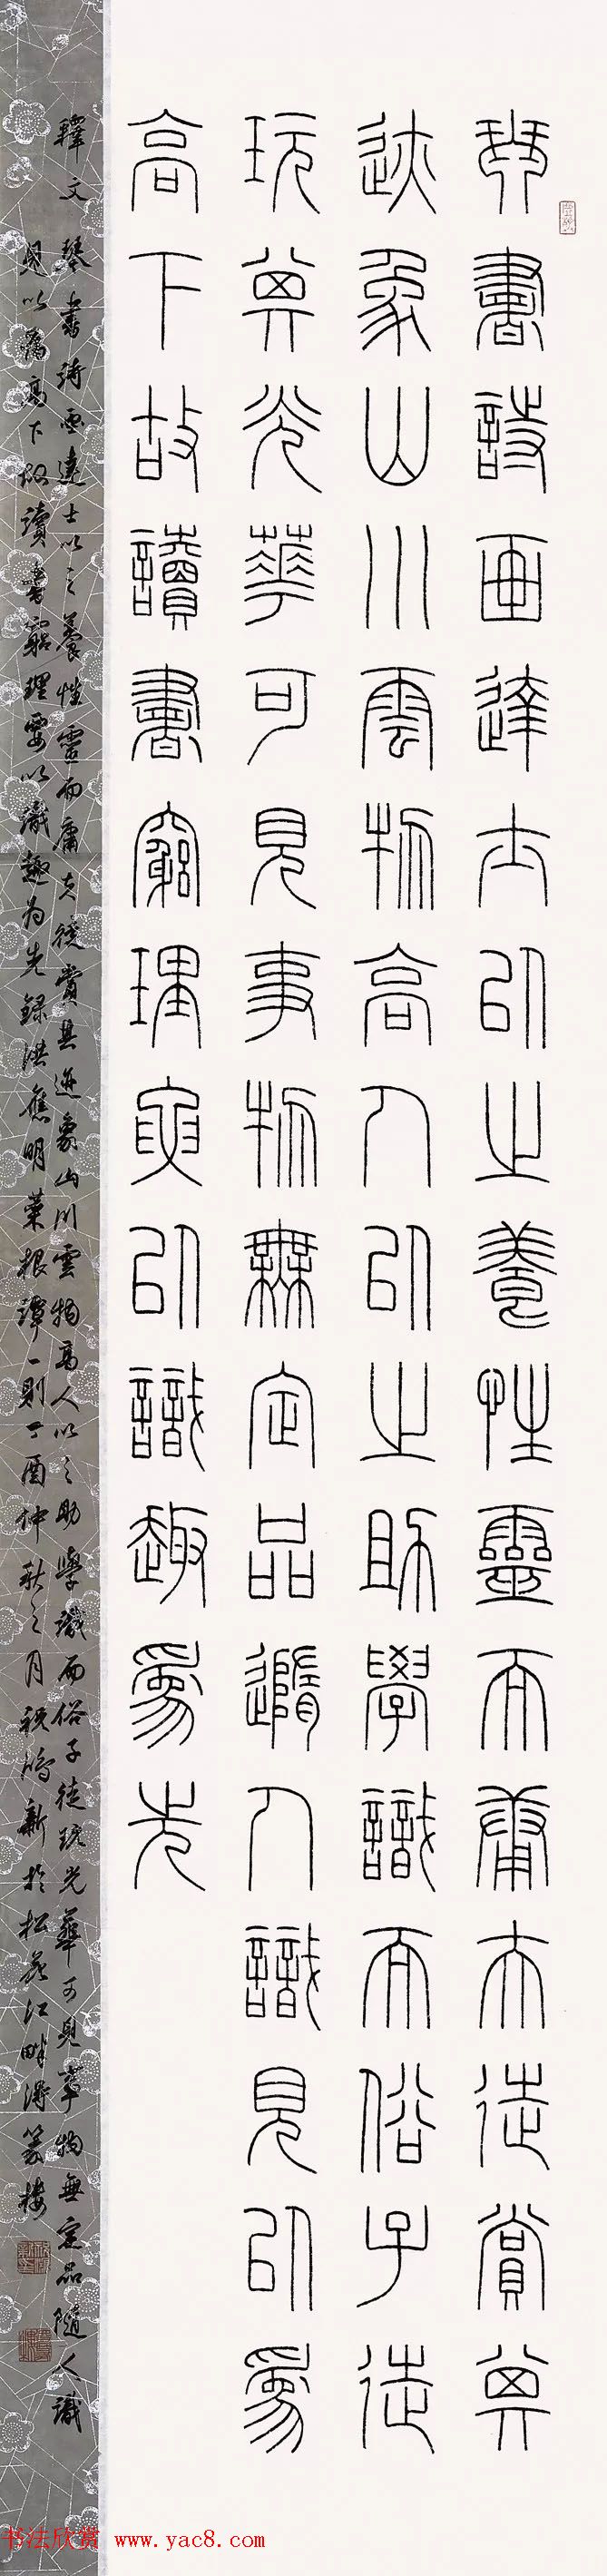 琴書詩画達士以之養性靈而庸夫徒賞其
迹象山川雲物高人以之助學識而俗子徒
玩其光華可見事物無定品隨人識見以為
高下故讀書窮理要以識趣為先
釋文 琴書詩画達士以之養性靈而庸夫徒賞其迹象山川雲物高人以之助學識而俗子徒玩光華可見事物無定品隨人識
見以為高下故讀書窮理要以識趣為先錄洪應明菜根譚一則丁酉仲秋之月祝鴻新於松花江畔得篆樓
书法欣赏 www.yac8.com